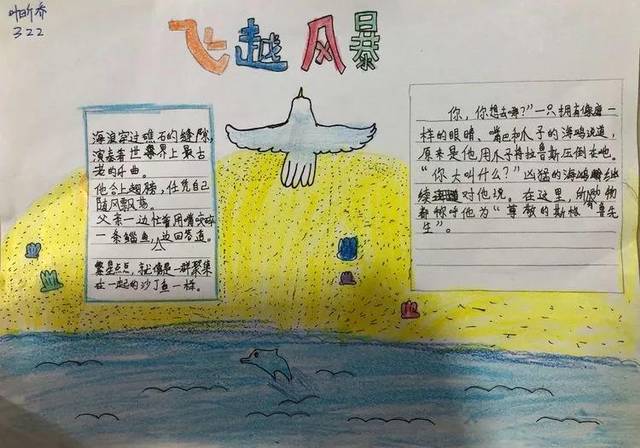 叶昕乔
322
飞越风暴
海浪穿过礁石的缝隙,
演奏着世界上最古
老的乐曲。
他合上翅膀,任凭自己
随风飘荡。
父亲一边忙着用嘴
一条鲻鱼,边回答道。
繁星点点,就像是一群聚集
在一起的沙丁鱼一样。
你,你想去哪?”一只拥有像
一样的眼睛、嘴巴和爪子的海鸥说道,
原来是他用爪子将拉鲁斯压倒在地。
“你大叫什么?”凶猛的海鸥继
续对他说。在这里,所动物
都称呼他为“尊敬的斯格鲁先
生”。